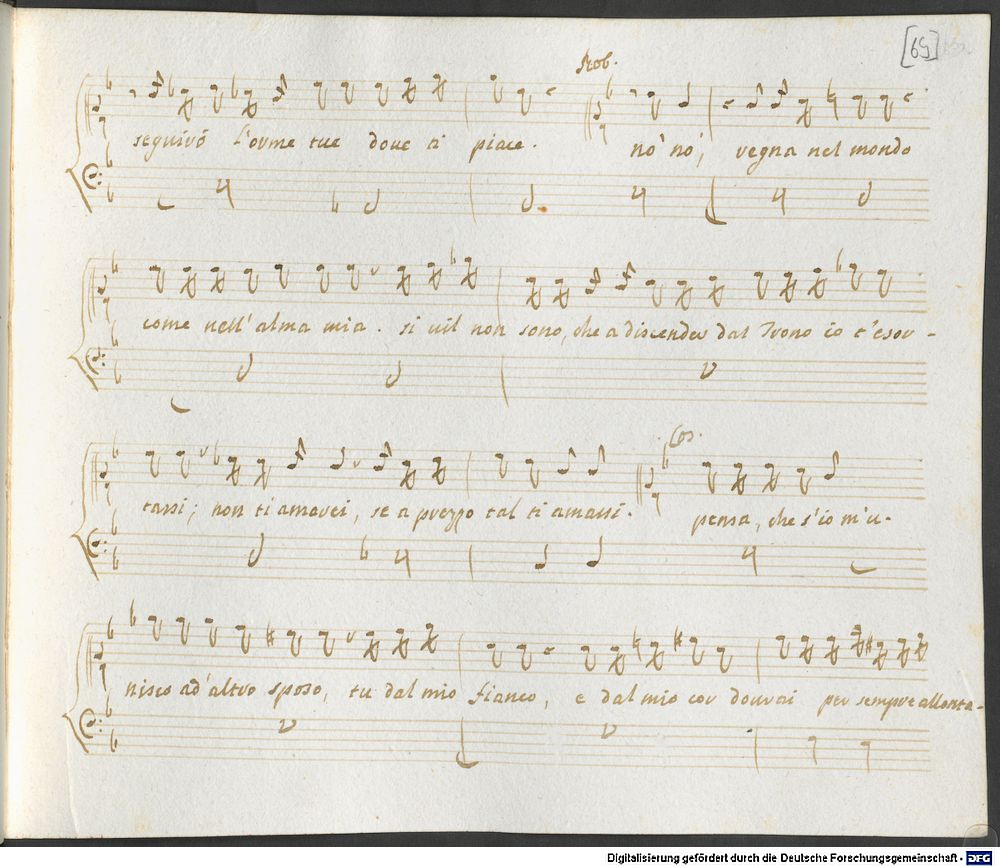 [69]
Rob.
seguirò l'orme tue doue a piace. nò nò; regna nel mondo
come nell'alma mia. si uil non sono, che a discender dal Trono io t'esor-
tassi; non ti amerei, se a prezzo tal ti amassi.
Cos.
pensa, che s'io m'u-
nisco ad'altro sposo, tu dal mio fianco, e dal mio cor dourai per sempre allonta-
Digitalisierung gefördert durch die Deutsche Forschungsgemeinschaft - DFG